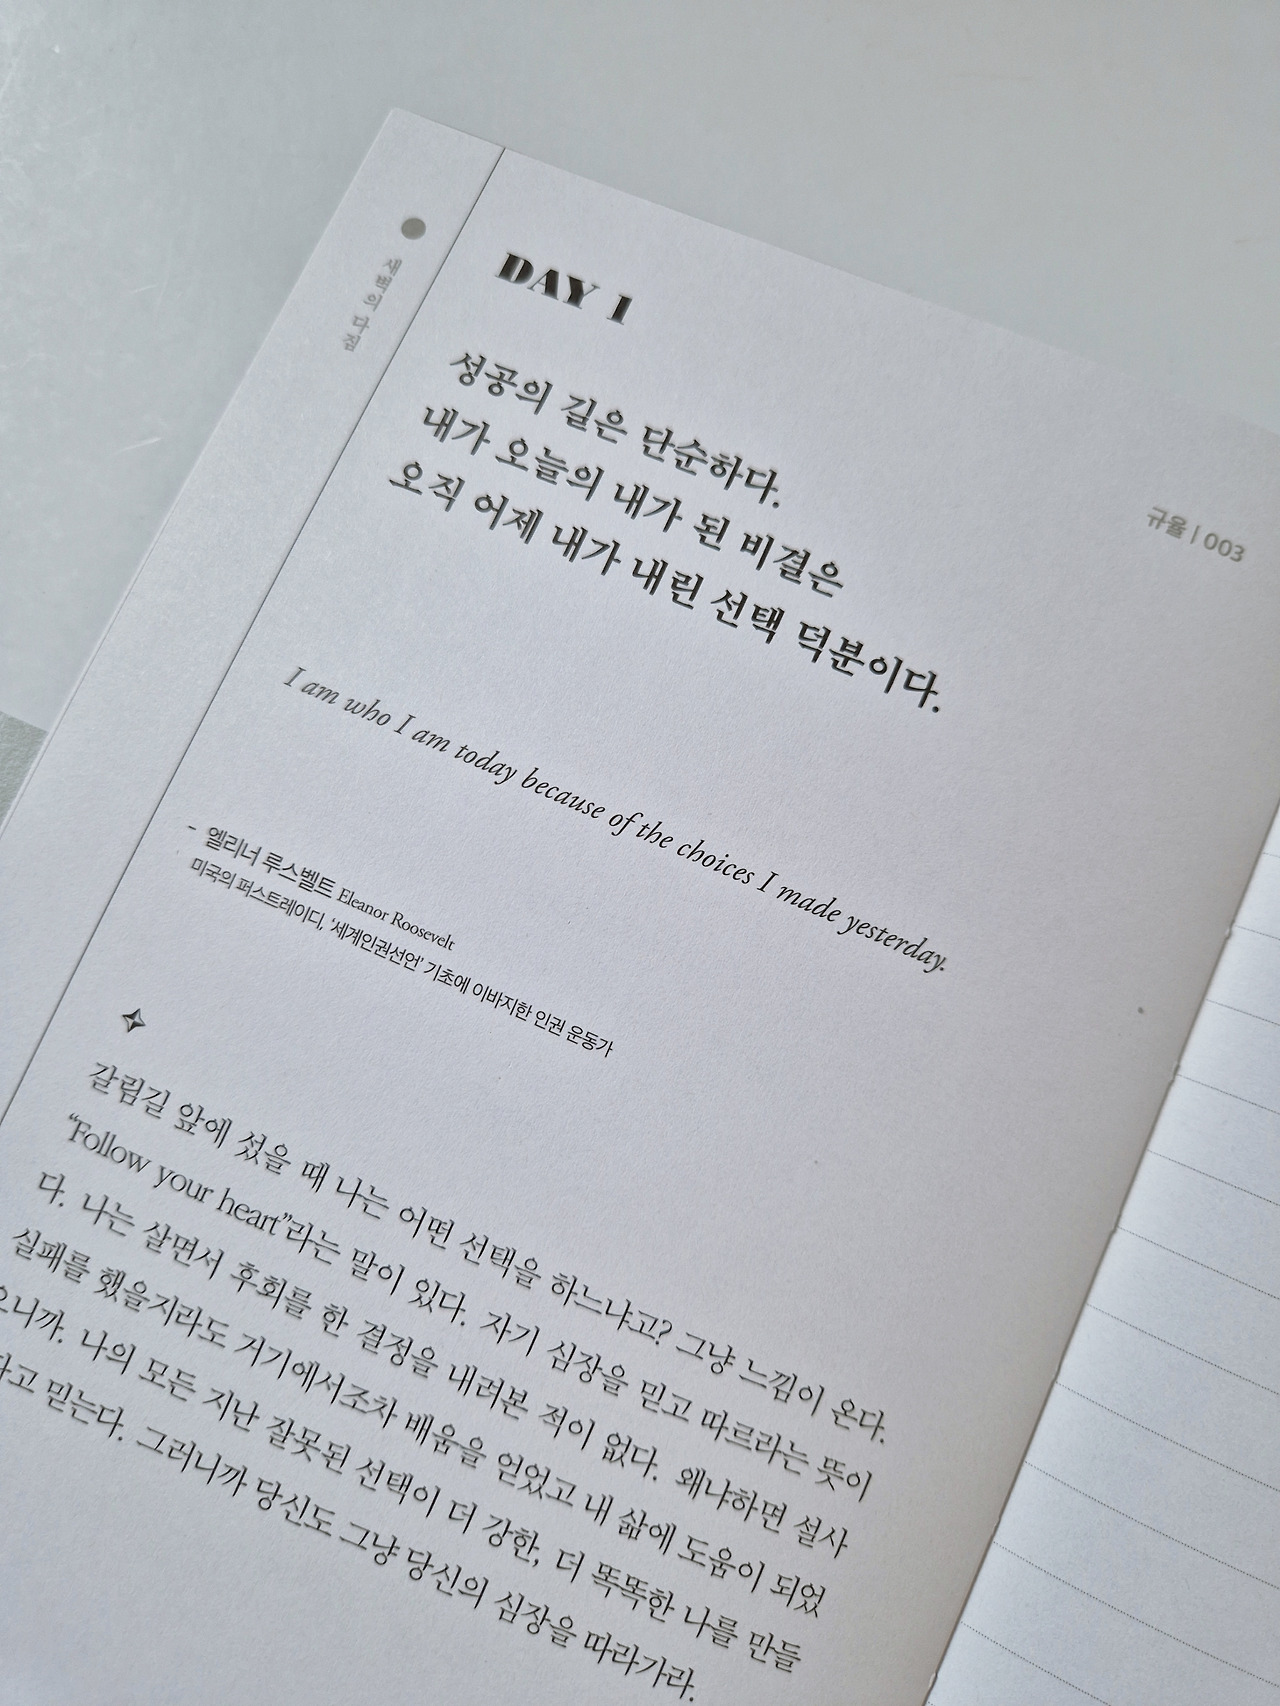 새벽의 다짐
DAY 1
성공의 길은 단순하다.
내가 오늘의 내가 된 비결은
오직 어제 내가 내린 선택 덕분이다.
규율 | 003
I am who I am today because of the choices I made yesterday.
- 엘리너 루스벨트 Eleanor Roosevelt
미국의 퍼스트레이디, ‘세계인권선언’ 기초에 이바지한 인권 운동가
갈림길 앞에 섰을 때 나는 어떤 선택을 하느냐고? 그냥 느낌이 온다.
“Follow your heart”라는 말이 있다. 자기 심장을 믿고 따르라는 뜻이
다. 나는 살면서 후회를 한 결정을 내려본 적이 없다. 왜냐하면 설사
실패를 했을지라도 거기에서조차 배움을 얻었고 내 삶에 도움이 되었
으니까. 나의 모든 지난 잘못된 선택이 더 강한, 더 똑똑한 나를 만들
다고 믿는다. 그러니까 당신도 그냥 당신의 심장을 따라가라.